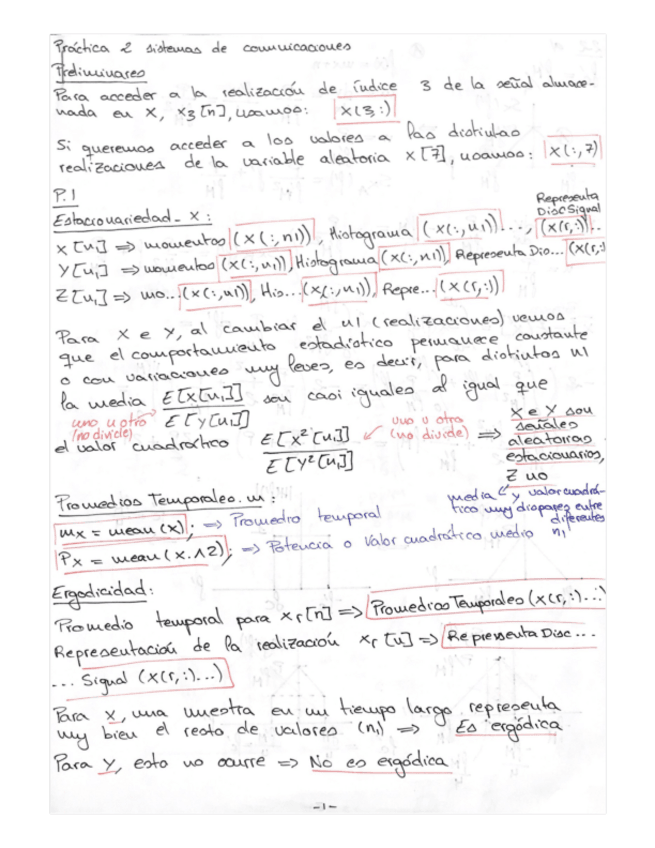 Práctica 2 sistemas de comunicaciones
Preliminares
Para acceder a la realización de índice 3 de la señal almace-
nada en X, x3[n], usamos: X(3,:)
Si queremos acceder a los valores a las distintas
realizaciones de la variable aleatoria x[7], usamos: X(:,7)
P.1
Estacionariedad - X:
Representa
Disc Signal
X[n1] => momentos (X(:,n1)), Histograma (X(:,n1))..., (X(r,:))..
Y[n1] => momentos (X(:,n1)), Histograma (X(:,n1)), Representa Dis... (X(r,:)
Z[n1] => mo... (X(:,n1)), His... (X(:,n1)), Repre... (X(r,:))
Para X e Y, al cambiar el n1 (realizaciones) vemos
que el comportamiento estadístico permanece constante
o con variaciones muy leves, es decir, para distintos n1
la media E[X[n1]] son casi iguales al igual que
E[Y[n1]]
uno u otro
(no divide)
el valor cuadrático E[X²[n1]]
E[Y²[n1]]
uno u otro
(no divide)
=> X e Y son
señales
aleatorias
estacionarias,
Z no
media y valor cuadrá-
tico muy dispares entre
diferentes
n1
Promedios Temporales.m:
mx = mean(x); => Promedio temporal
Px = mean(x.^2); => Potencia o Valor cuadrático medio
Ergodicidad:
Promedio temporal para xr[n] => Promedios Temporales (X(r,:)...)
Representación de la realización xr[n] => Representa Disc...
... Signal (X(r,:)...)
Para X, una muestra en un tiempo largo representa
muy bien el resto de valores (n1) => Es ergódica
Para Y, esto no ocurre => No es ergódica
-1-